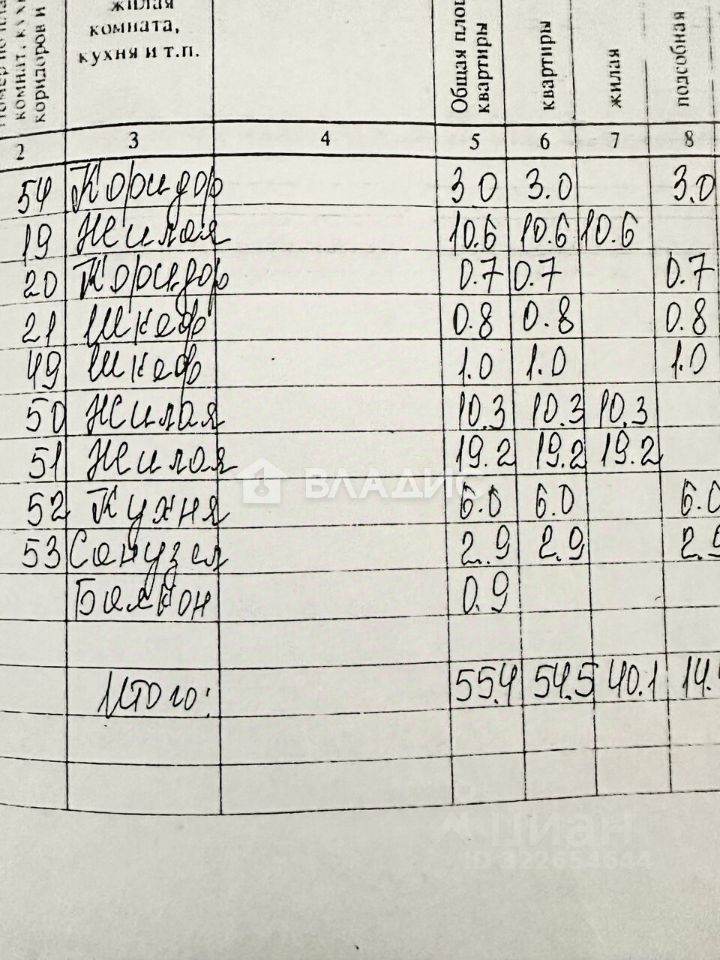 жилая
комната,
кухня и т.п.
комнат, кухни
коридоров и
Общая пло
квартиры
квартиры
жилая
подсобная
2 3 4 5 6 7 8
54 Коридор 3.0 3.0 3.0
19 Жилая 10.6 10.6 10.6
20 Коридор 0.7 0.7 0.7
21 Шкаф 0.8 0.8 0.8
49 Шкаф 1.0 1.0 1.0
50 Жилая 10.3 10.3 10.3
51 Жилая 19.2 19.2 19.2
ВЛАДИС
52 Кухня 6.0 6.0 6.0
53 Санузел 2.9 2.9 2.9
Балкон 0.9
Итого: 55.4 54.5 40.1 14.4
циан
ID 322654644